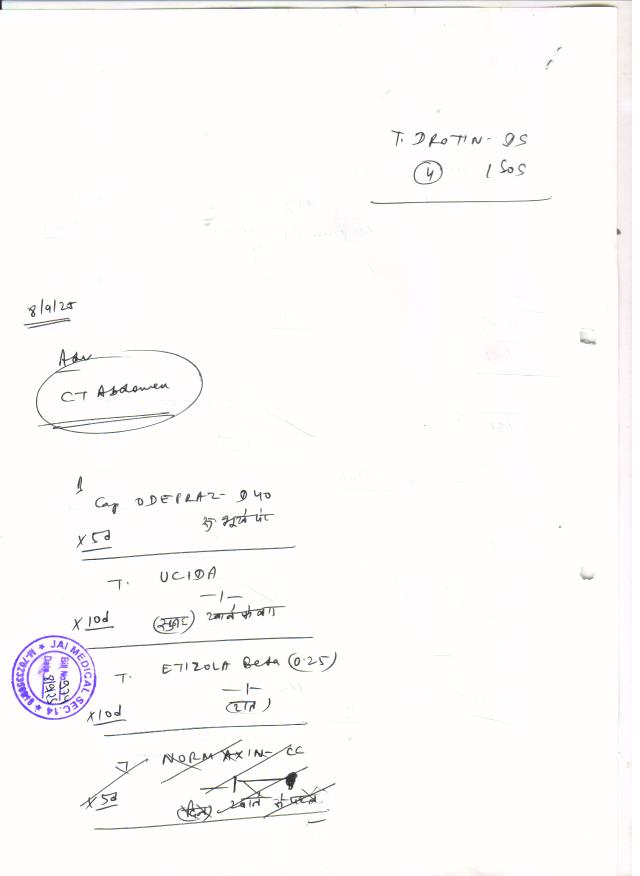 T. DROTIN - DS
4 1 SOS
8/9/25
Adv
CT Abdomen
Cap ODEPRAZ - D 40
भूखे पेट
x 5d
T. UCIDA
— 1 —
x 10d (सुबह) खाने के बाद
T. ETIZOLA Beta (0.25)
— 1 —
x 10d (रात)
T NORMAXIN - CC
x 5d (दिन) खाने से पहले
★ JAI MEDICAL SEC.14 ★
Bill No.
Date